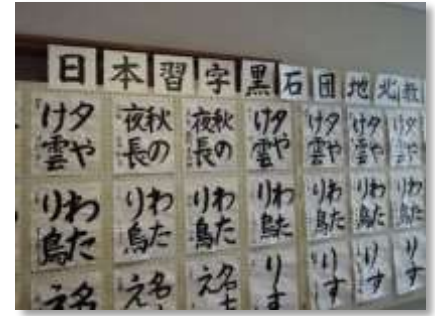 日本習字黒石団地北教
夕や
け雲
秋の
夜長
秋の
夜長
夕や
け雲
夕や
け雲
夕や
け雲
夕や
け雲
わた
り鳥
わた
り鳥
わた
り鳥
わた
り鳥
わた
り鳥
わた
り鳥
わた
り鳥
りす
りす
りす
りす